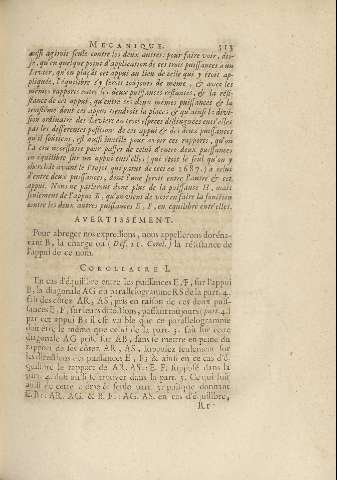 MECANIQUE. 313
aussi agiroit seule contre les deux autres: pour faire voir, dis-
je, qu'en quelque point d'application de ces trois puissances à un
Levier, qu'on plaçât cet appui au lieu de celle que y étoit ap-
pliquée, l'équilibre y étoit toujours de même, & avec les
mêmes rapports entre les deux puissances restantes, & la résis-
tance de cet appui, qu'entre ces deux mêmes puissances & la
troisiéme dont cet appui tiendroit la place; & qu'ainsi la divi-
sion ordinaire des Leviers en trois especes distinguées entr'elles
par les differentes positions de cet appui & des deux puissances
qu'il soûtient, est aussi inutile pour avoir ces rapports, qu'on
l'a cru necessaire pour passer de celui d'entre deux puissances
en équilibre sur un appui entr'elles; qui étoit le seul qu'on y
cherchât avant le Projet qui parut de ceci en 1687. à celui
d'entre deux puissances, dont l'une seroit entre l'autre & cet
appui. Nous ne parlerons donc plus de la puissance H, mais
seulement de l'appui B, qu'on vient de voir en faire la fonction
contre les deux autres puissances E, F, en équilibre entr'elles.
AVERTISSEMENT.
Pour abreger nos expressions, nous appellerons doréna-
vant B, la charge ou ( Def. 21. Corol. ) la résistance de
l'appui de ce nom.
COROLLAIRE I.
En cas d'équilibre entre les puissances E, F, sur l'appui
B, la diagonale AG du parallelogramme RS de la part. 4.
fait des côtez AR, AS, pris en raison de ces deux puis-
sances E, F, sur leurs directions, passant toujours ( part. 4. )
par cet appui B; il est visible que ce parallelogramme
doit être le même que celui de la part. 3. fait sur cette
diagonale AG prise sur AB, sans se mettre en peine du
rapport de ses côtez AR, AS, supposez seulement sur
les directions des puissances E, F; & ainsi en ce cas d'é-
quilibre le rapport de AR. AS :: E. F. supposé dans la
part. 4. doit aussi se trouver dans la part. 3. Ce qui fait
aussi de cette
E. B :: AR. AG. & B. F :: AG. AS. en cas d'équilibre,
R r